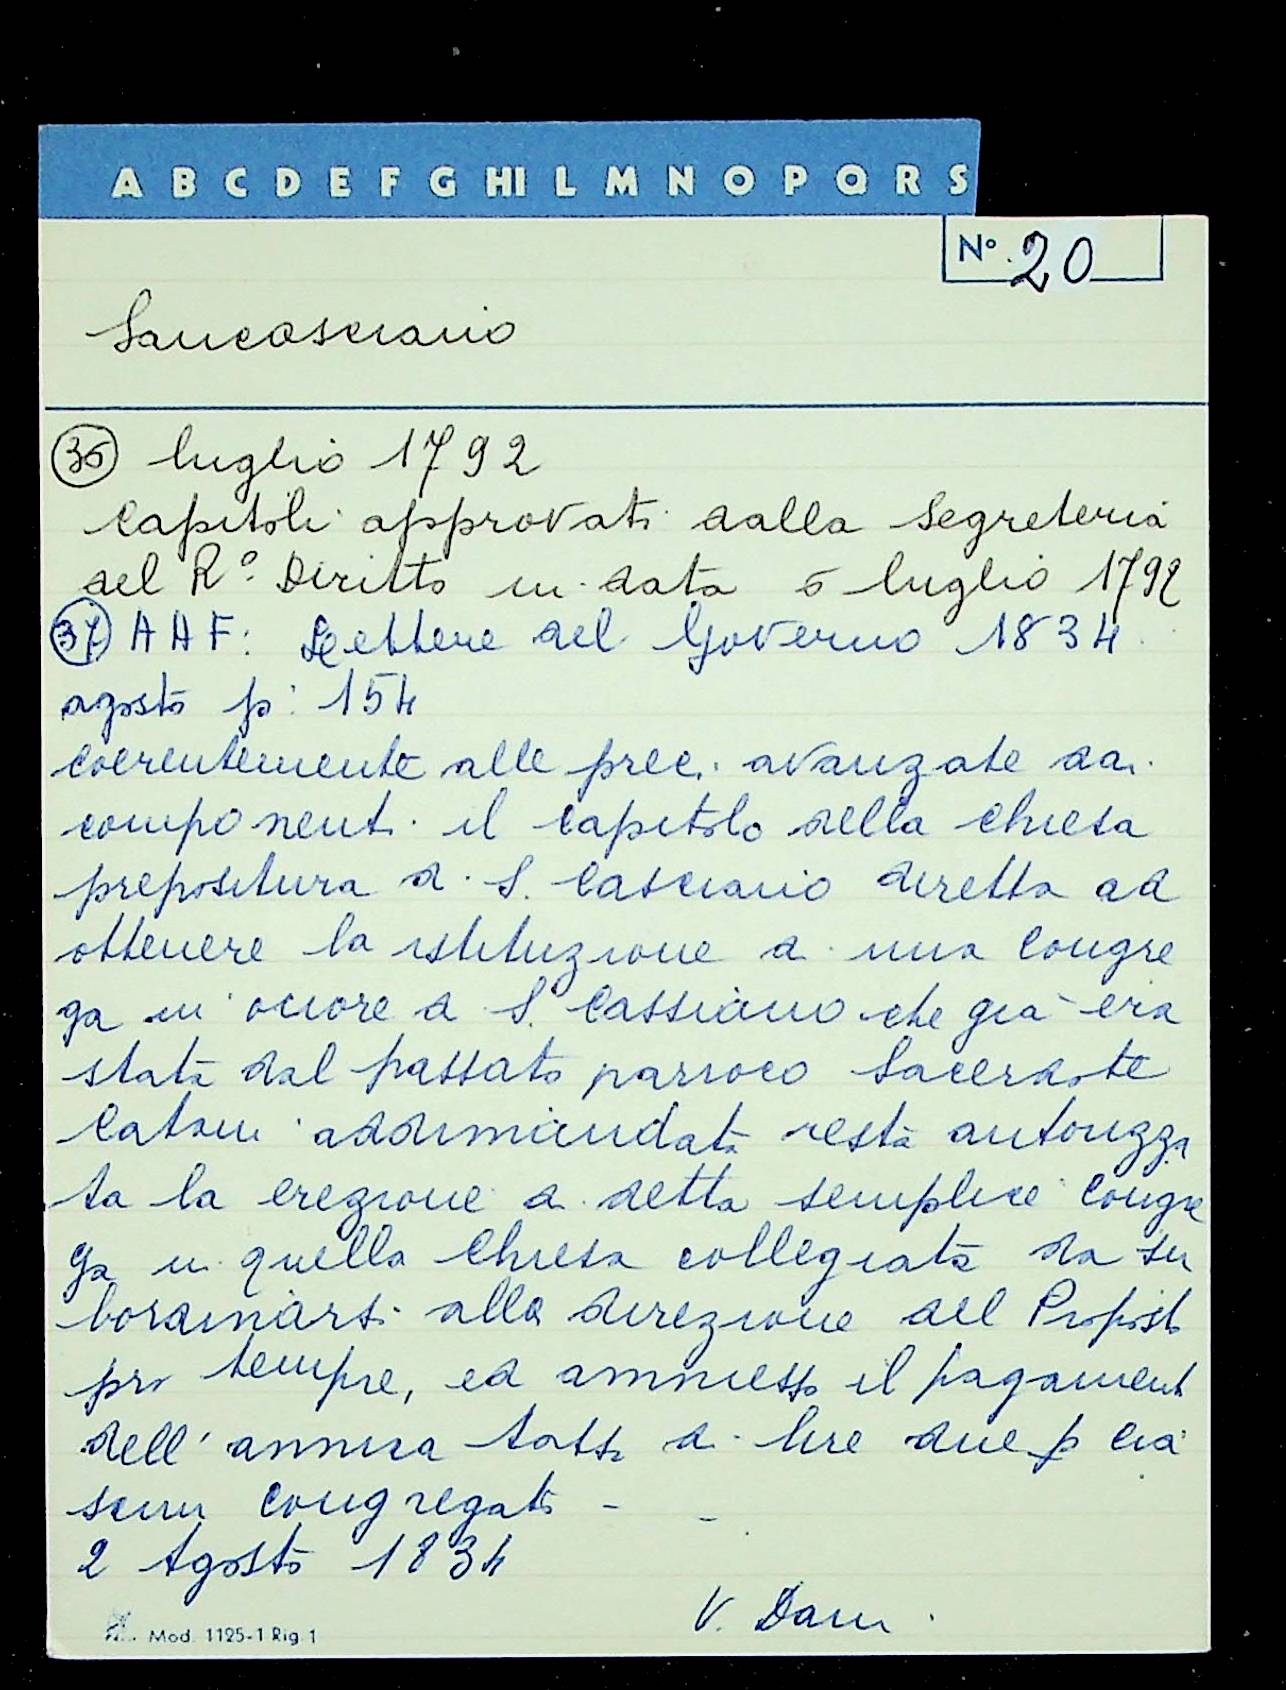 A B C D E F G HI L M N O P Q R S
N° 20
Sancasciano
36 luglio 1792
Capitoli approvati dalla Segreteria
del R.° Diritto in data 6 luglio 1792
37 A A F: Lettere del Governo 1834
agosto p: 154
coerentemente alle prec. avanzate dai
componenti il Capitolo della Chiesa
prepositura di S. Casciano diretta ad
ottenere la istituzione di una Congre
ga in onore di S. Cassiano che già era
stata dal passato parroco Sacerdote
Catani addimandata resta autorizza
ta la erezione di detta semplice Congre
ga in quella Chiesa collegiata da su
bordinarsi alla direzione del Proposto
pro tempre, ed ammesso il pagamento
dell'annua tassa di lire due p cia
scun congregato -
2 Agosto 1834
V. Dani
Mod. 1125-1 Rig. 1